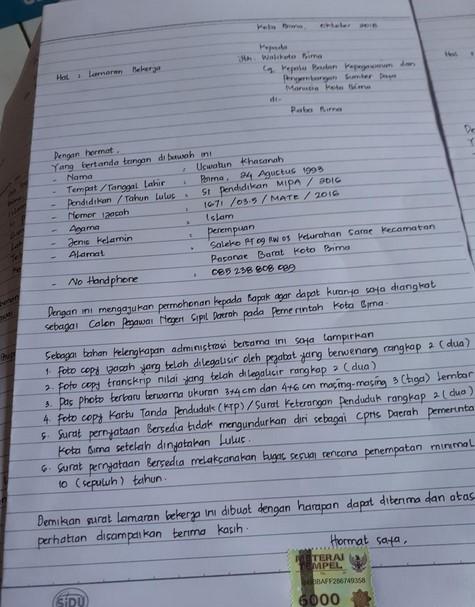 Kota Bima, Oktober 2018
Kepada
Hal : Lamaran Bekerja
Yth. Walikota Bima
Cq. Kepala Badan Kepegawaian dan
Pengembangan Sumber Daya
Manusia Kota Bima
di-
Raba Bima
Dengan hormat,
Yang bertanda tangan di bawah ini
- Nama : Uswatun Khasanah
- Tempat/Tanggal Lahir : Bima, 24 Agustus 1993
- Pendidikan / Tahun Lulus : S1 Pendidikan MIPA / 2016
- Nomor Ijazah : 1671 /03.5 / MATE / 2016
- Agama : Islam
- Jenis Kelamin : perempuan
- Alamat : Saleko RT 09 RW 03 Kelurahan Sarae Kecamatan
Rasanae Barat Kota Bima
- No Handphone : 085 238 808 089
Dengan ini mengajukan permohonan kepada Bapak agar dapat kiranya saya diangkat
sebagai Calon Pegawai Negeri Sipil Daerah pada Pemerintah Kota Bima.
Sebagai bahan kelengkapan administrasi bersama ini saya lampirkan
1. Foto copy Ijazah yang telah dilegalisir oleh pejabat yang berwenang rangkap 2 (dua)
2. Foto copy transkrip nilai yang telah dilegalisir rangkap 2 (dua)
3. Pas photo terbaru berwarna ukuran 3x4 cm dan 4x6 cm masing-masing 3 (tiga) lembar
4. Foto copy Kartu Tanda Penduduk (KTP) / Surat Keterangan Penduduk rangkap 2 (dua)
5. Surat pernyataan Bersedia tidak mengundurkan diri sebagai CPNS Daerah pemerinta
Kota Bima setelah dinyatakan Lulus.
6. Surat pernyataan Bersedia melaksanakan tugas sesuai rencana penempatan minimal
10 (sepuluh) tahun.
Demikian surat lamaran bekerja ini dibuat dengan harapan dapat diterima dan atas
perhatian disampaikan terima kasih.
Hormat saya,
METERAI
TEMPEL
6000
SiDU